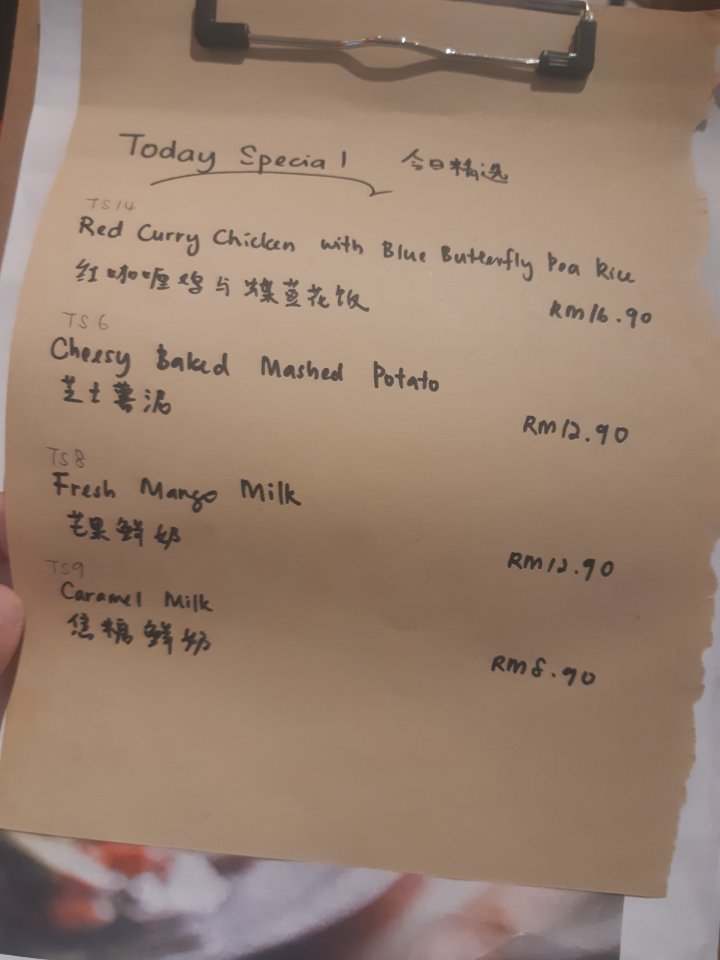 Today Special 今日精选
TS14
Red Curry Chicken with Blue Butterfly Pea Rice
红咖喱鸡与蝶荳花饭
RM16.90
TS6
Cheesy Baked Mashed Potato
芝士薯泥
RM12.90
TS8
Fresh Mango Milk
芒果鲜奶
RM12.90
TS9
Caramel Milk
焦糖鲜奶
RM8.90